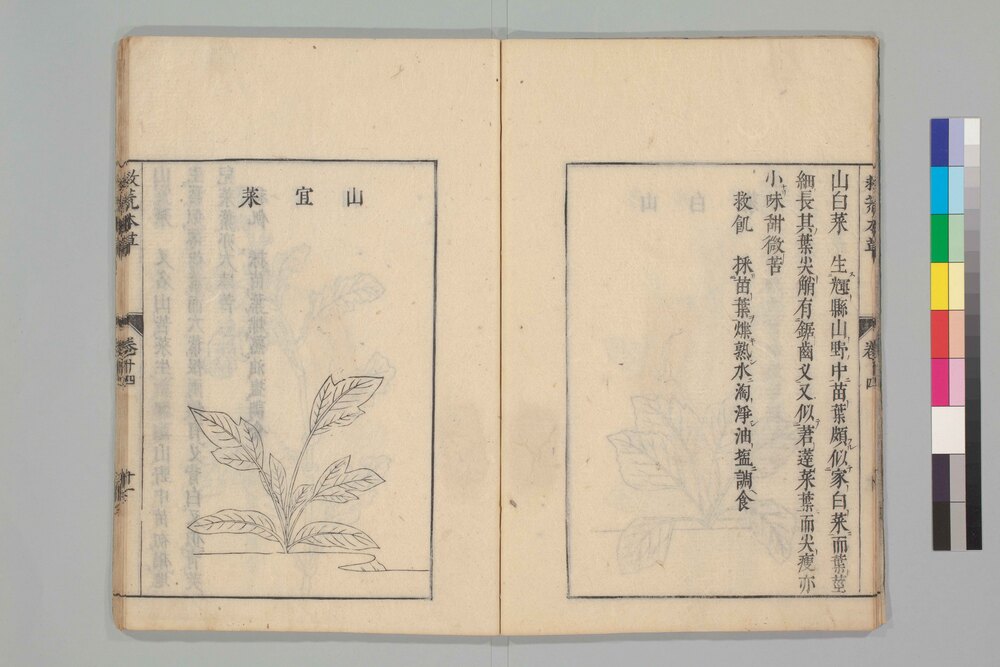 山白菜　生輝縣山野中苗葉頗似家白菜而葉莖
細長其葉尖艄有鋸齒叉又似莙薘菜葉而尖瘦亦
小味甜微苦
救飢　採苗葉煠熟水淘淨油鹽調食
山宜菜
救荒本草
卷十四